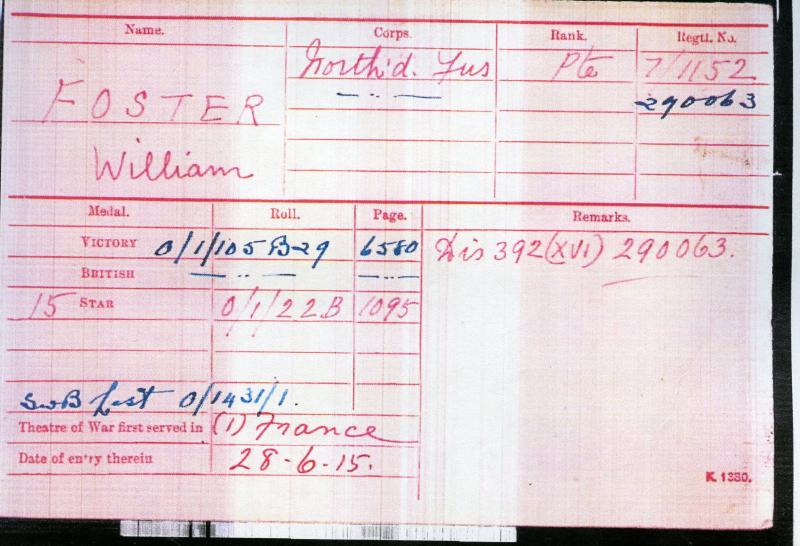 Name. Corps. Rank. Regtl. No.
North'd. Fus Pte 7/1152
FOSTER —"— 290063
William
Medal. Roll. Page. Remarks.
VICTORY 0/1/105 B29 6580 Dis 392(XVI) 290063.
BRITISH —"— —"—
15 STAR 0/1/22B 1095
SWB List 0/1431/1.
Theatre of War first served in (1) France
Date of entry therein 28-6-15.
K. 1380.